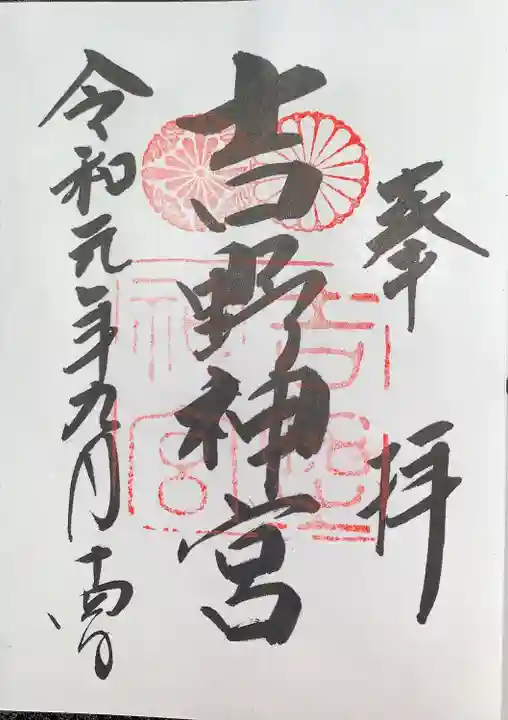 奉拝
吉野神宮
吉野神宮
令和元年九月十四日